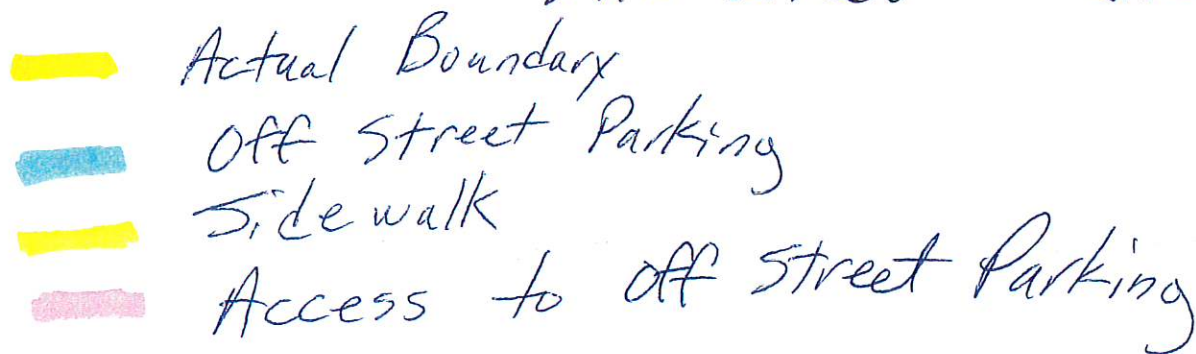 Actual Boundary
Off Street Parking
Sidewalk
Access to Off Street Parking